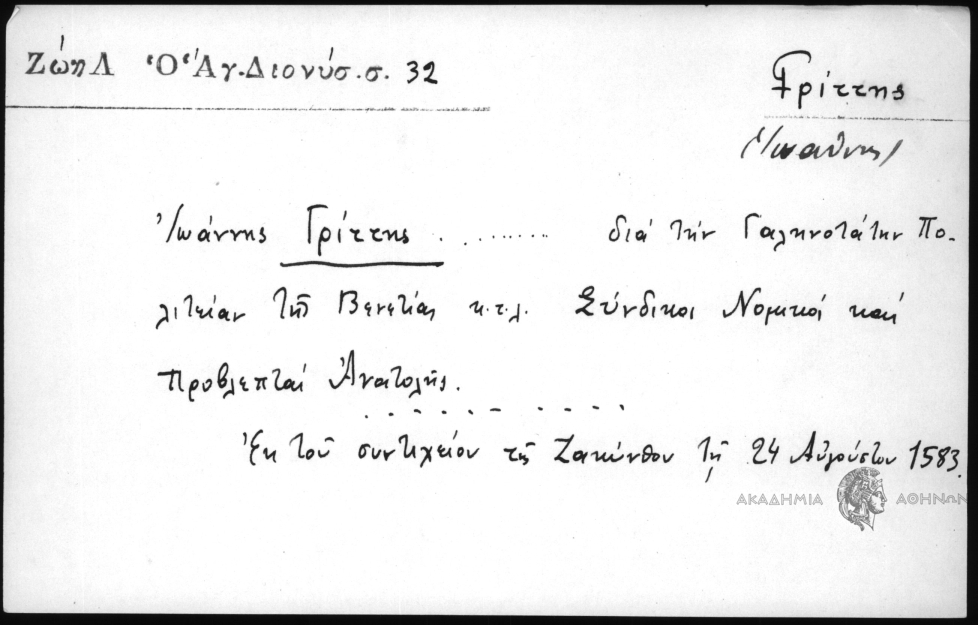 Ζώη Λ Ὁ Ἅγ. Διονύσ. σ. 32
Γρίττης
Ἰωάννης
Ἰωάννης Γρίττης . ........ διά τήν Γαληνοτάτην Πο-
λιτείαν τῆς Βενετίας κ.τ.λ. Σύνδικοι Νομικοί καί
Προβλεπταί Ἀνατολῆς.
. . . . . . . . . . .
Ἐκ τοῦ συντιχείου τῆς Ζακύνθου τῇ 24 Αὐγούστου 1583.
ΑΚΑΔΗΜΙΑ ΑΘΗΝΩΝ